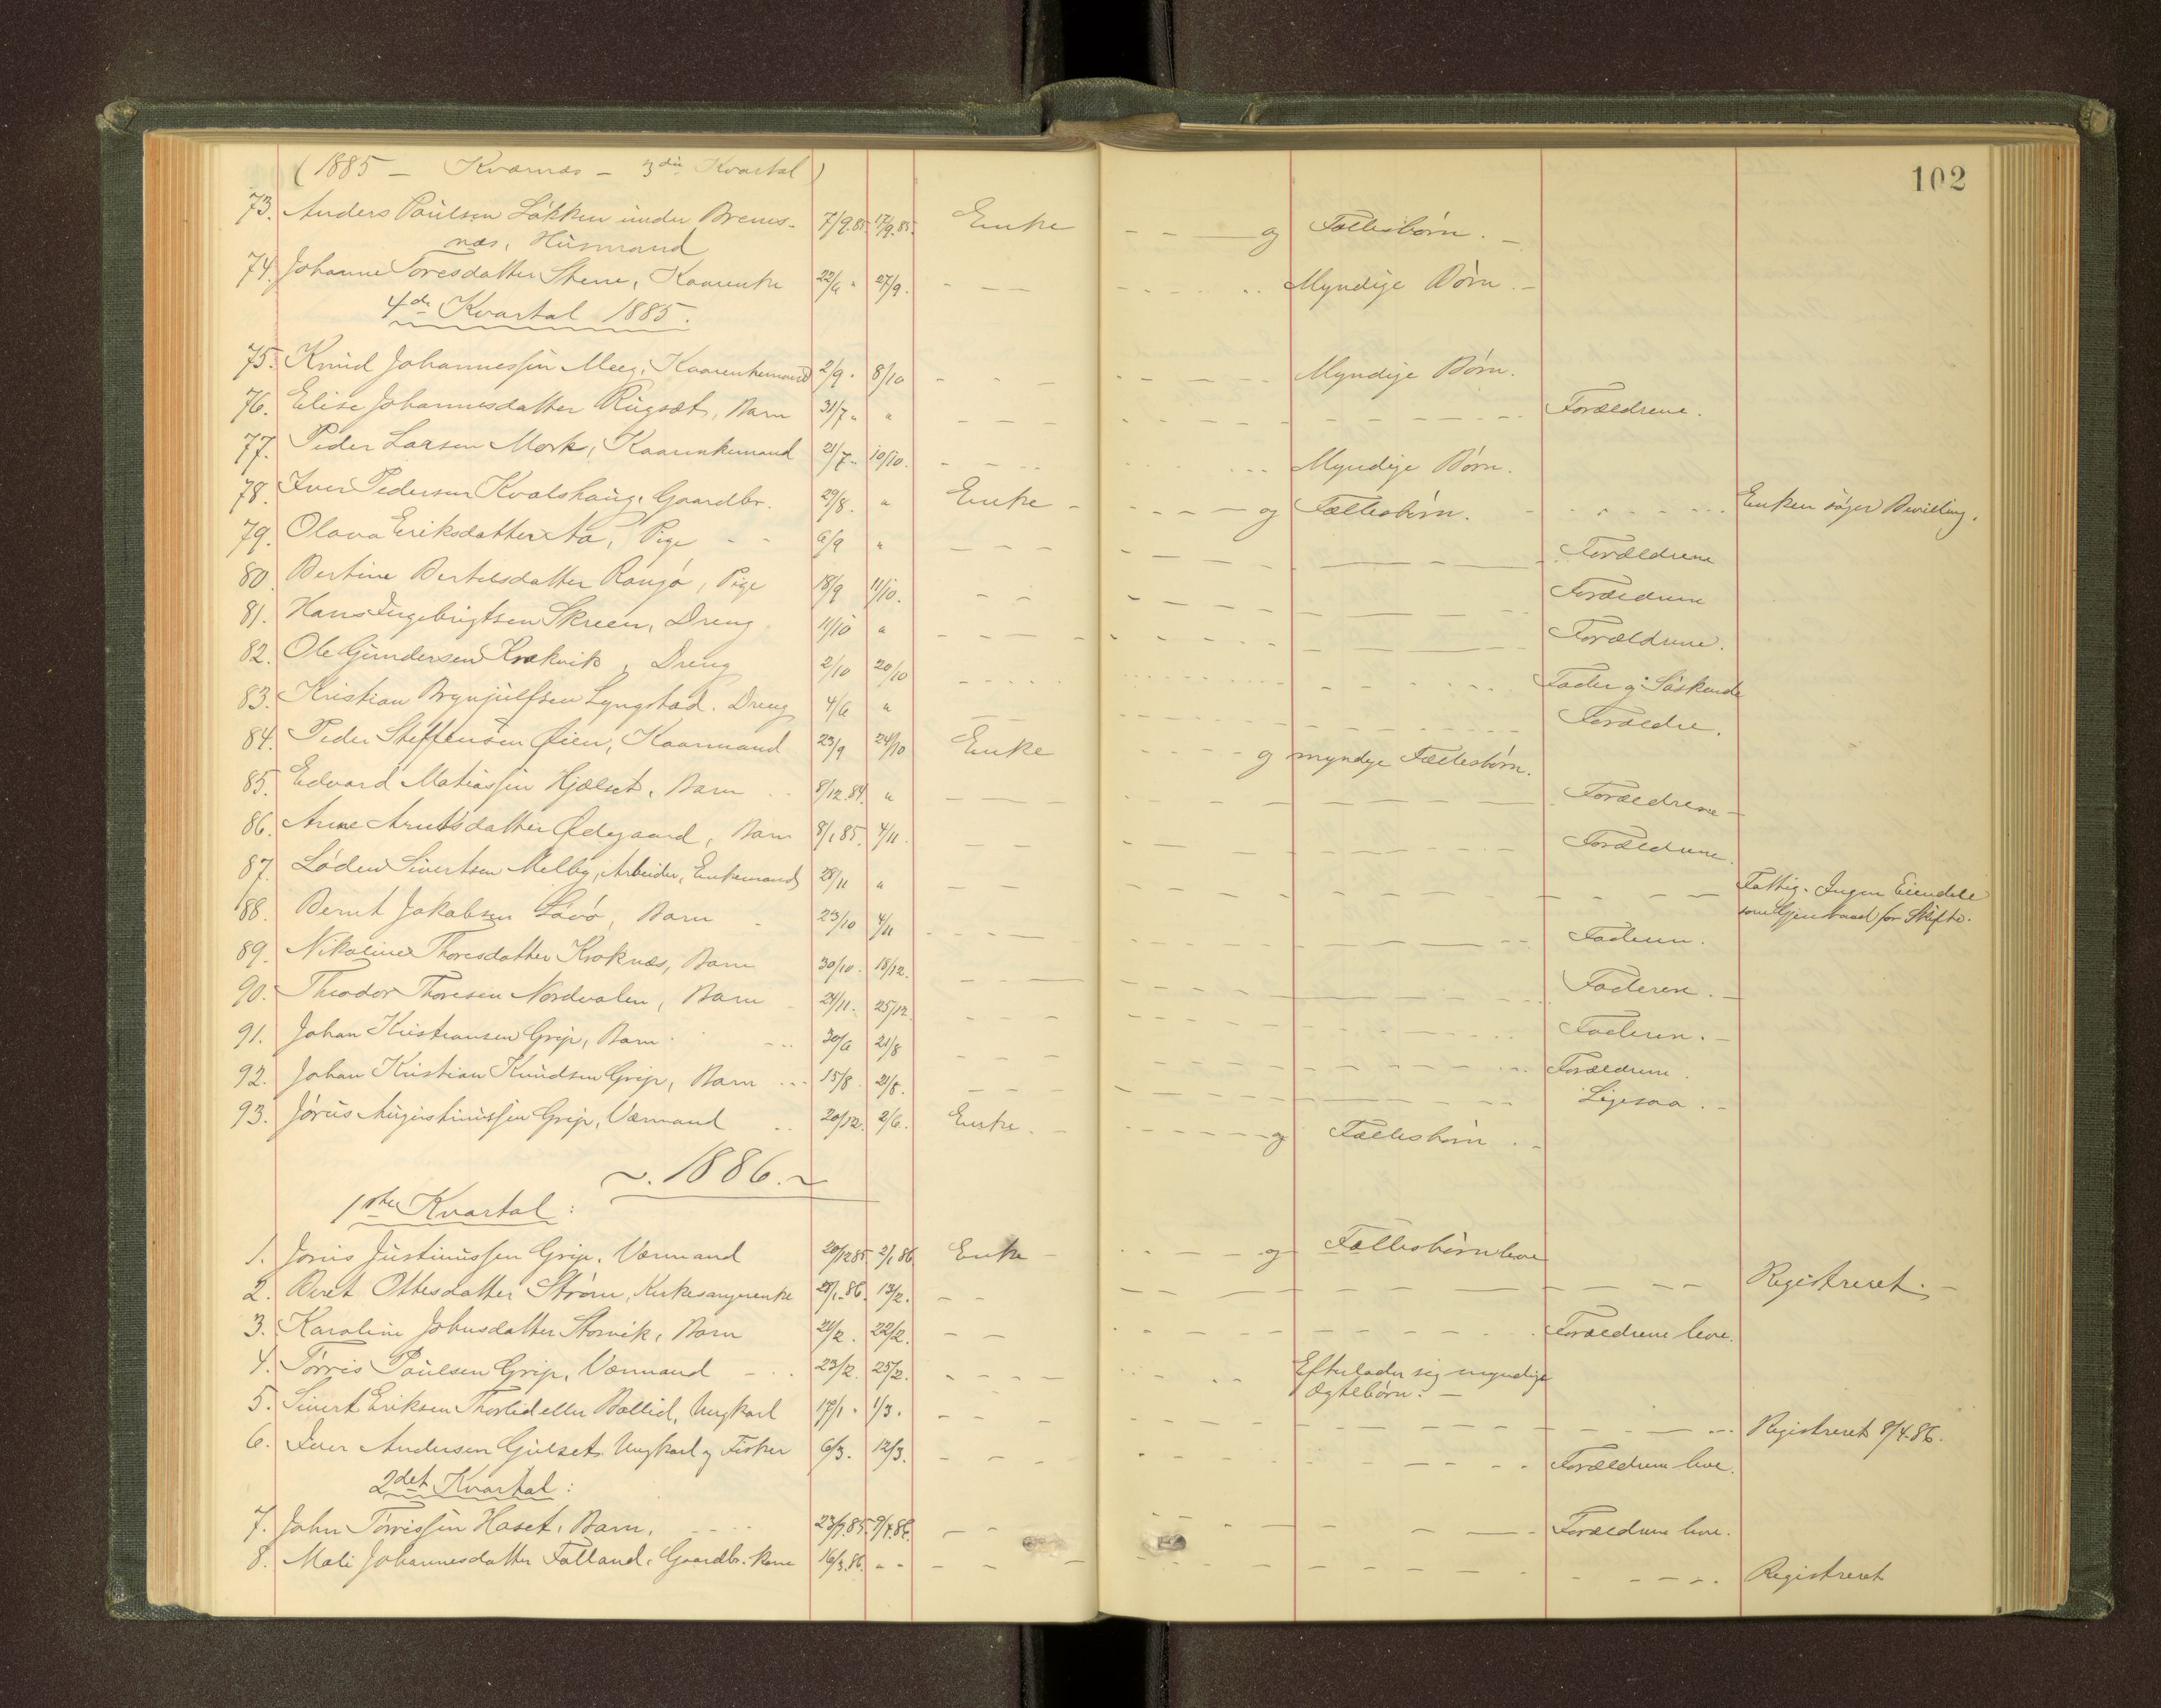 102
(1885 – Kværnæs – 3die Kvartal)
73. Anders Paulsen Løkken under Brems- 7/9.85. 17/9.85. Enke og Fællesbörn.
næs, Husmand
74. Johanne Toresdatter Stene, Kaarenke 22/6 " 27/9. Myndige Börn.
4de Kvartal 1885.
75. Knud Johannessen Meeg, Kaarenkemand 2/9. 8/10 Myndige Börn.
76. Elise Johannesdatter Rugsæt, Barn 31/7 " " Forældrene.
77. Peder Larsen Mork, Kaarenkemand 21/7 " 10/10. Myndige Börn.
78. Iver Pedersen Kvalshaug, Gaardbr. 29/8. " Enke og Fællesbörn. Enken söger Bevilling.
79. Olava Eriksdatter Aa, Pige 6/9 " Forældrene
80. Bertine Bertelsdatter Ramsö, Pige 18/9 11/10. Forældrene
81. Hans Ingebrigtsen Skreen, Dreng 11/10 " Forældrene.
82. Ole Gundersen Krækvik, Dreng 2/10 20/10 Fader og Söskende
83. Kristian Brynjulfsen Lyngstad. Dreng 4/6 " Forældre.
84. Peder Steffensen Øien, Kaarmand 23/9 24/10 Enke og myndige Fællesbörn.
85. Edvard Matiassen Hjælset, Barn 8/12.84. " Forældrene
86. Anne Arntsdatter Ødegaard, Barn 8/1 85. 4/11. Forældrene.
87. Löden Sivertsen Melby, Arbeider, Enkemand 28/11 " Fattig. Ingen Eiendele
som Gjenstand for Skifte.
88. Bernt Jakobsen Lövö, Barn 23/10 4/11 Faderen.
89. Nikoline Thoresdatter Kroknæs, Barn 30/10. 18/12. Faderen.
90. Theodor Thoresen Nordvalen, Barn 24/11. 25/12. Faderen.
91. Johan Kristiansen Grip, Barn 30/6 21/8 Forældrene.
92. Johan Kristian Knudsen Grip, Barn 15/8. 21/8. Ligesaa.
93. Jörus Augustinussen Grip, Værmand 20/12. 2/6. Enke. og Fællesbörn.
1886.
1ste Kvartal:
1. Jörus Justinussen Grip, Værmand 20/12 85. 2/1 86. Enke og Fællesbörn leve
2. Beret Ottesdatter Ström, Kirkesangerenke 28/1.86. 13/2. Registreret.
3. Karoline Johnsdatter Storvik, Barn 21/2. 22/2. Forældrene leve.
4. Törris Paulsen Grip, Værmand 23/2. 25/2. Efterlader sig myndige
Ægtebörn.
5. Sivert Eriksen Thorlid eller Bollid, Ungkarl 17/1. 1/3. Registreret 8/4.86.
6. Iver Andersen Gulset, Ungkarl og Fisker 6/3. 12/3. Forældrene leve.
2det Kvartal:
7. John Törrissen Haset, Barn. 23/9.85. 9/4.86. Forældrene leve.
8. Mali Johannesdatter Folland, Gaardbr. kone 16/3.86. Registreret